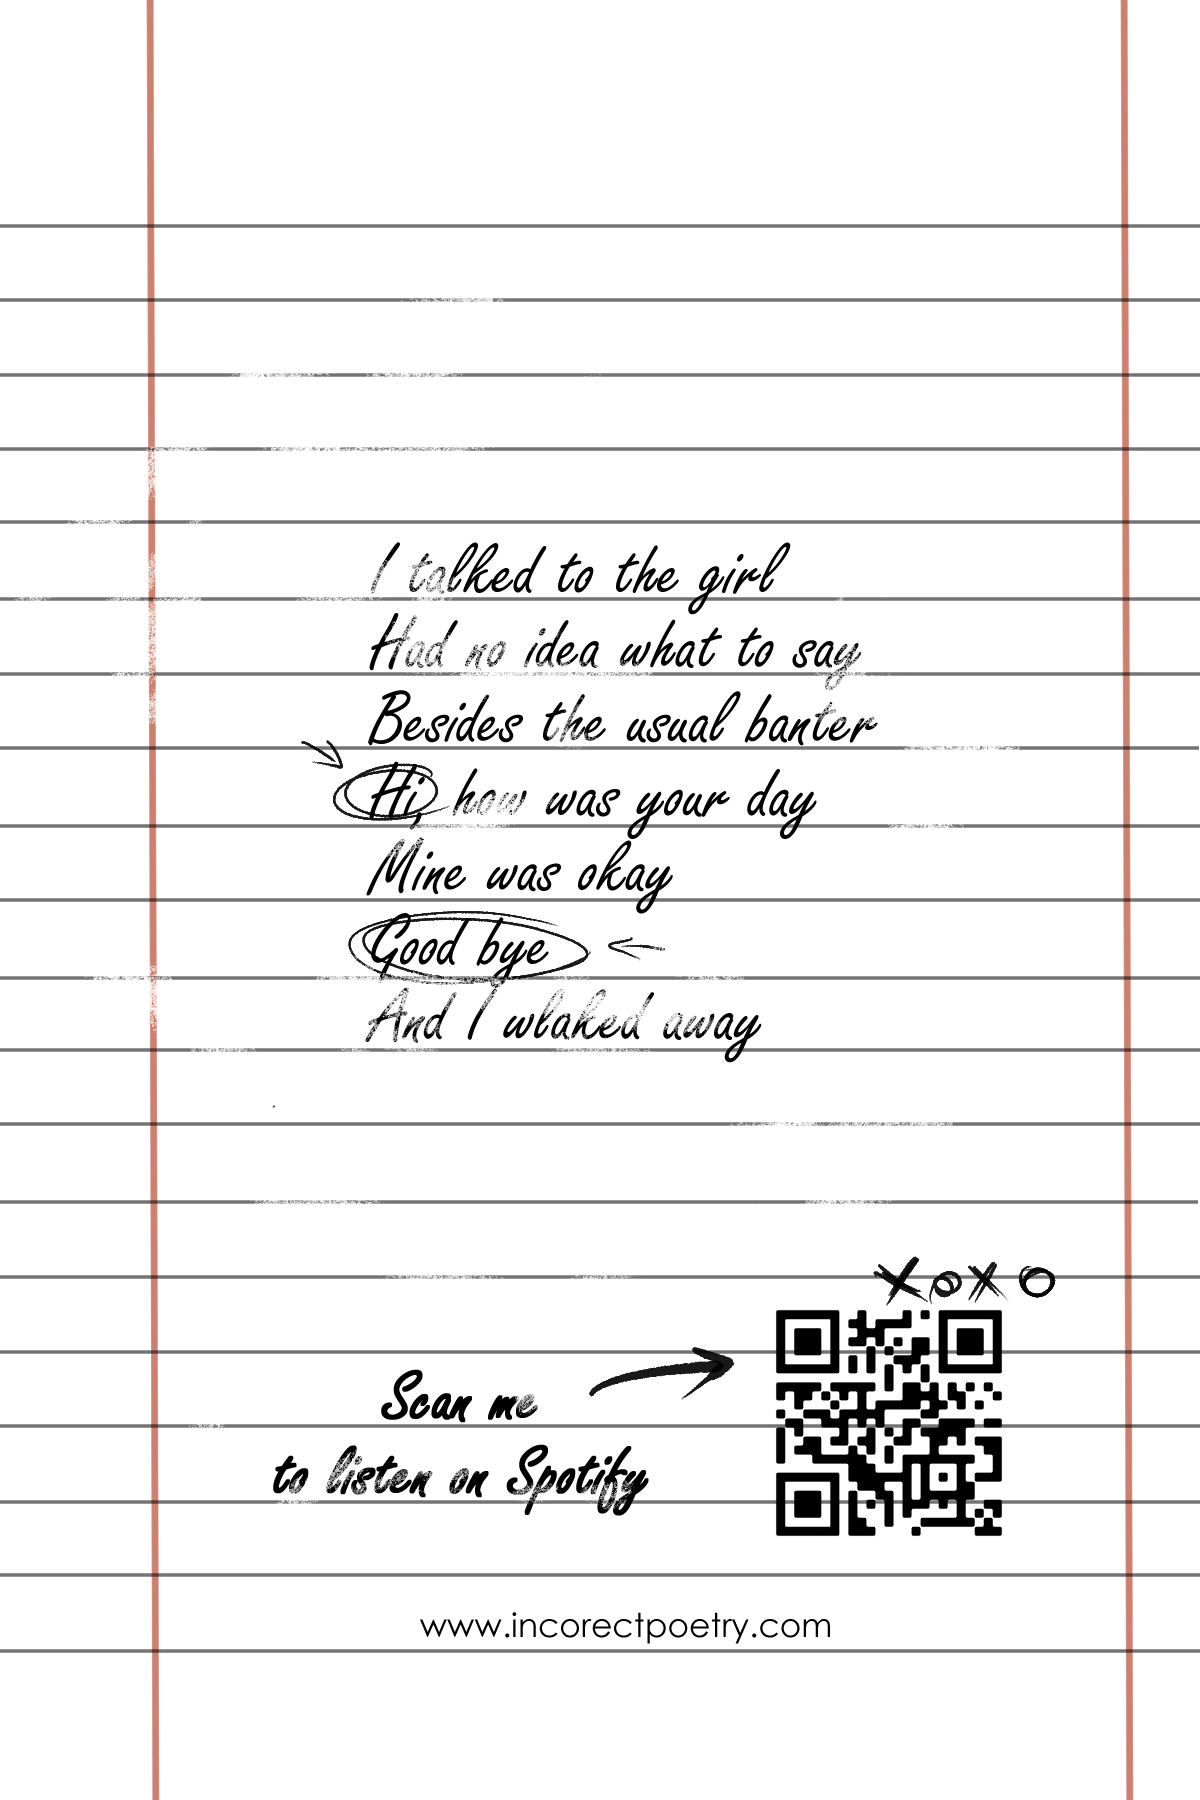 I talked to the girl
Had no idea what to say
Besides the usual banter
Hi, how was your day
Mine was okay
Good bye
And I wlaked away
XOXO
Scan me
to listen on Spotify
www.incorectpoetry.com